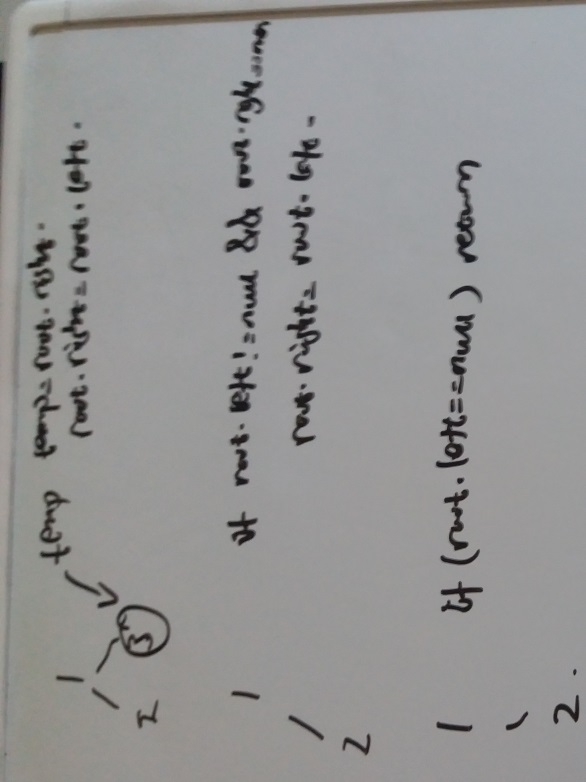 temp temp=root.right.
root.right=root.left.
1
2
3
if root.left!=null && root.right==null
root.right=root.left.
1
2
if (root.left==null) return
1
2.